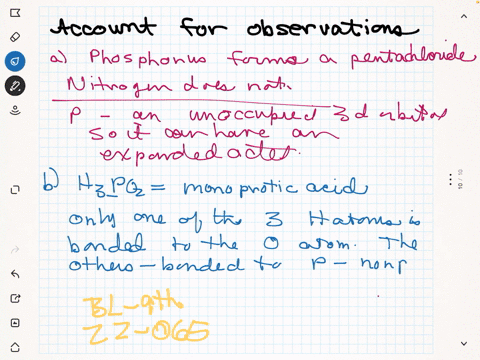 Account for observations
a) Phosphorus forms a pentachloride
Nitrogen does not.
P - an unoccupied 3d orbital
so it can have an
expanded octet.
b) H3PO2 = monoprotic acid
only one of the 3 H atoms is
bonded to the O atom. The
others - bonded to P - nonp
BL-9th
22-065
10 / 10